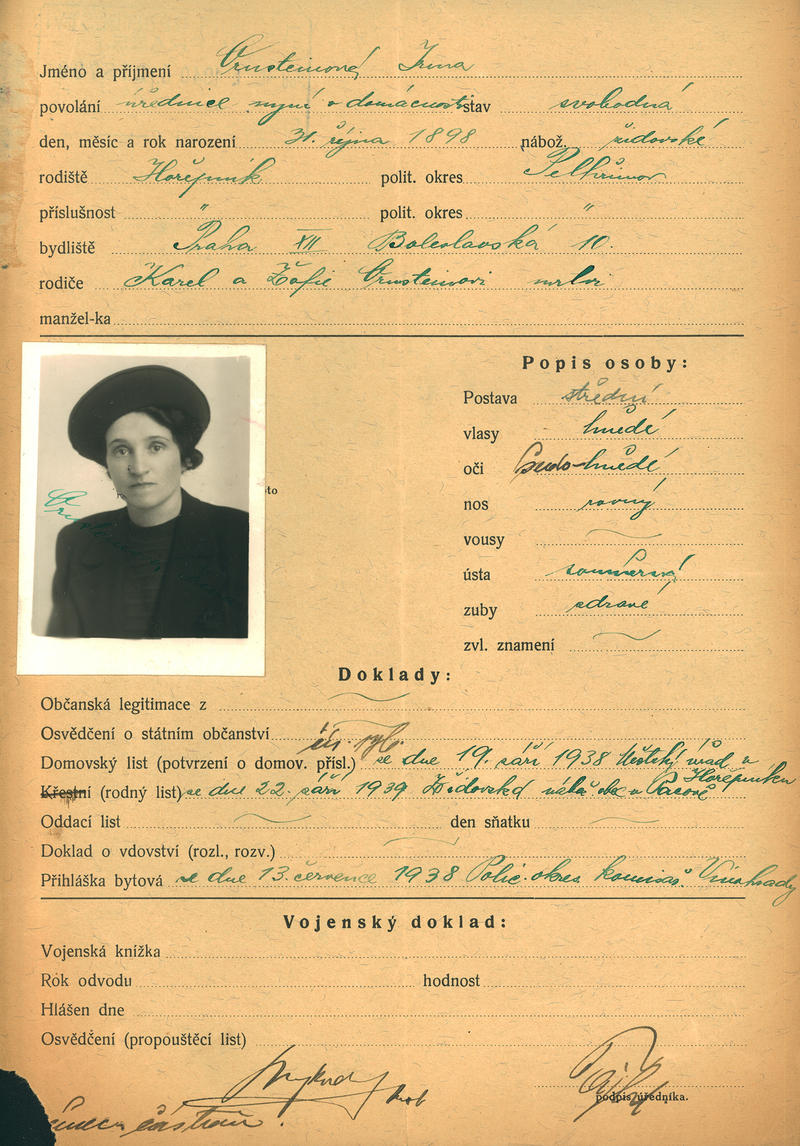 Jméno a příjmení Ornsteinová Irma
povolání úřednice nyní v domácnosti stav svobodná
den, měsíc a rok narození 31. října 1898 nábož. židovské
rodiště Hořepník polit. okres Pelhřimov
příslušnost " polit. okres "
bydliště Praha XII Boleslavská 10.
rodiče Karel a Žofie Ornsteinovi mrtvi
manžel-ka
Popis osoby:
Postava střední
vlasy hnědé
oči šedo-hnědé
to
nos rovný
vousy
ústa souměrná
zuby zdravé
zvl. znamení
Doklady:
Občanská legitimace z
Osvědčení o státním občanství
Domovský list (potvrzení o domov. přísl.) ze dne 19. září 1938 Městský úřad v Hořepníku
Křestní (rodný list) ze dne 22. září 1939 Židovská nábož. obec v Pacově
Oddací list den sňatku
Doklad o vdovství (rozl., rozv.)
Přihláška bytová ze dne 13. července 1938 Polic. okres. komisař. Vinohrady
Vojenský doklad:
Vojenská knížka
Rok odvodu hodnost
Hlášen dne
Osvědčení (propouštěcí list)
podpis úředníka.